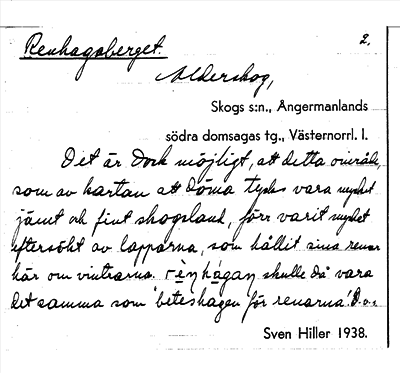 Renhagsberget. 2.
Alderskog,
Skogs s:n., Ångermanlands
södra domsagas tg., Västernorrl. l.
Det är dock möjligt, att detta område,
som av kartan att döma tycks vara mycket
jämt och fint skogsland, förr varit mycket
eftersökt av lapparna, som hållit sina renar
här om vintrarna. rènhágan skulle då vara
det samma som 'beteshagen för renarna'. D.v.
Sven Hiller 1938.